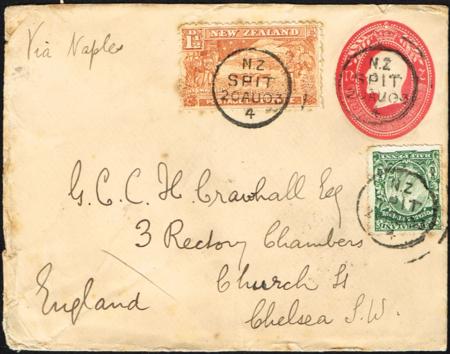 Via Naples
1½D
NEW ZEALAND
N.Z
SPIT
20AU03
4
N.Z
SPIT
20AU03
NZ
SPIT
4
G.C.C.H. Crawhall Esq
3 Rectory Chambers
Church St
Chelsea S.W.
England